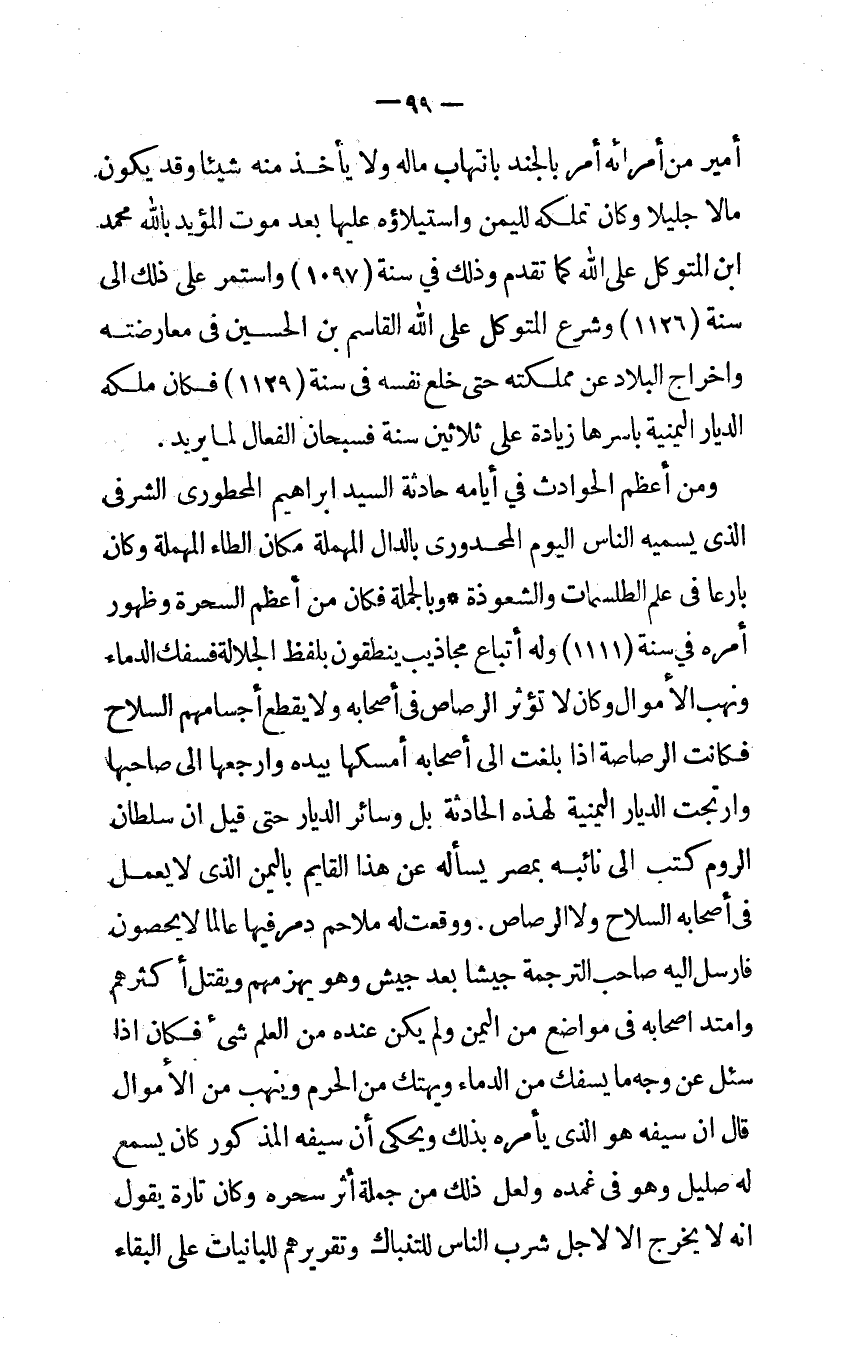 — ٩٩ —
أمير من أمرائه أمر بالجند بانتهاب ماله ولا يأخذ منه شيئا وقد يكون
مالا جليلا وكان تملكه لليمن واستيلاؤه عليها بعد موت المؤيد بالله محمد
ابن المتوكل على الله كما تقدم وذلك في سنة (١٠٩٧) واستمر على ذلك الى
سنة (١١٢٦) وشرع المتوكل على الله القاسم بن الحسين فى معارضته
واخراج البلاد عن مملكته حتى خلع نفسه فى سنة (١١٢٩) فكان ملكه
الديار اليمنية باسرها زيادة على ثلاثين سنة فسبحان الفعال لما يريد .
ومن أعظم الحوادث في أيامه حادثة السيد ابراهيم المحطورى الشرفى
الذى يسميه الناس اليوم المحدورى بالدال المهملة مكان الطاء المهملة وكان
بارعا فى علم الطلسمات والشعوذة * وبالجملة فكان من أعظم السحرة وظهور
أمره في سنة (١١١١) وله أتباع مجاذيب ينطقون بلفظ الجلالة فسفك الدماء
ونهب الأموال وكان لا تؤثر الرصاص فى أصحابه ولا يقطع أجسامهم السلاح
فكانت الرصاصة اذا بلغت الى أصحابه أمسكها بيده وارجعها الى صاحبها
وارتجت الديار اليمنية لهذه الحادثة بل وسائر الديار حتى قيل ان سلطان
الروم كتب الى نائبه بمصر يسأله عن هذا القايم باليمن الذى لا يعمل
فى أصحابه السلاح ولا الرصاص . ووقعت له ملاحم دمر فيها عالما لا يحصون
فارسل اليه صاحب الترجمة جيشا بعد جيش وهو يهزمهم ويقتل أكثرهم
وامتد اصحابه فى مواضع من اليمن ولم يكن عنده من العلم شىء فكان اذا
سئل عن وجه ما يسفك من الدماء ويهتك من الحرم وينهب من الأموال
قال ان سيفه هو الذى يأمره بذلك ويحكى أن سيفه المذكور كان يسمع
له صليل وهو فى غمده ولعل ذلك من جملة أثر سحره وكان تارة يقول
انه لا يخرج الا لاجل شرب الناس للتنباك وتقريرهم للبانيات على البقاء